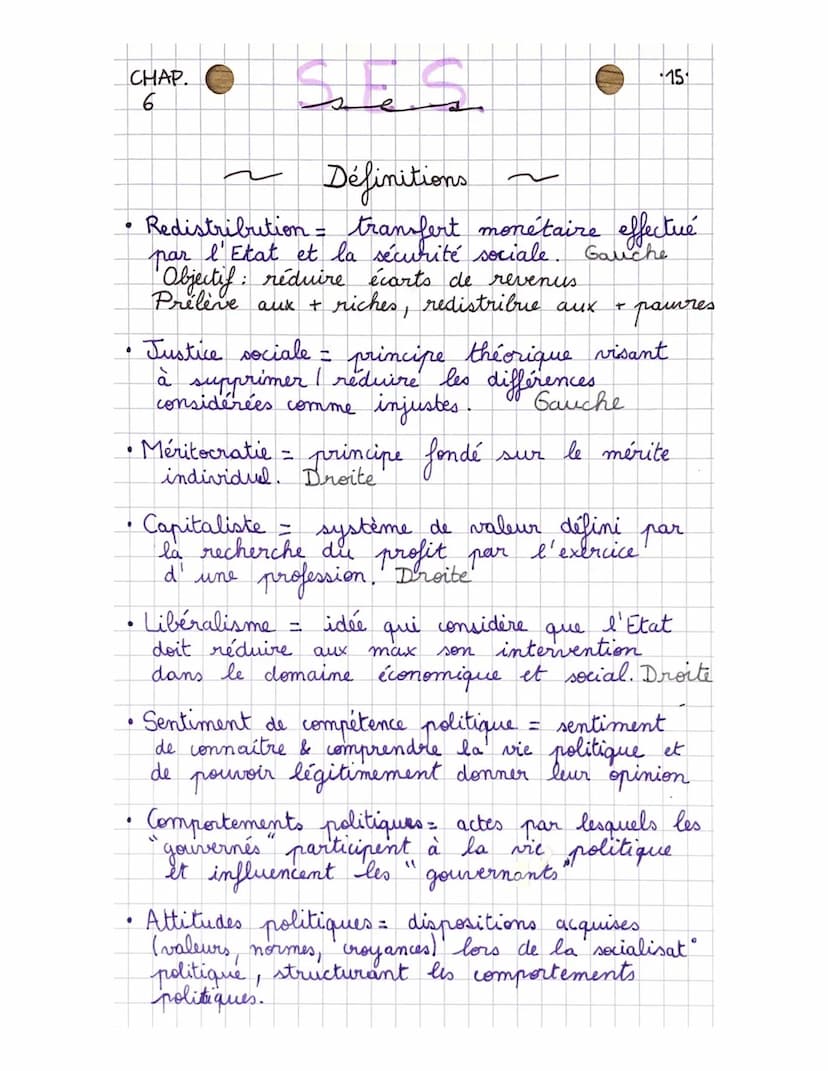 CHAP. 6
S.E.S
ses
·15·
~ Définitions ~
• Redistribution = transfert monétaire effectué
par l'Etat et la sécurité sociale. Gauche
Objectif : réduire écarts de revenus
Prélève aux + riches, redistribue aux + pauvres
• Justice sociale = principe théorique visant
à supprimer / réduire les différences
considérées comme injustes. Gauche
• Méritocratie = principe fondé sur le mérite
individuel. Droite
• Capitaliste = système de valeur défini par
la recherche du profit par l'exercice
d'une profession. Droite
• Libéralisme = idée qui considère que l'Etat
doit réduire aux max son intervention
dans le domaine économique et social. Droite
• Sentiment de compétence politique = sentiment
de connaître & comprendre la vie politique et
de pouvoir légitimement donner leur opinion
• Comportements politiques = actes par lesquels les
"gouvernés" participent à la vie politique
et influencent les "gouvernants"
• Attitudes politiques = dispositions acquises
(valeurs, normes, croyances) lors de la socialisat°
politique, structurant les comportements
politiques.